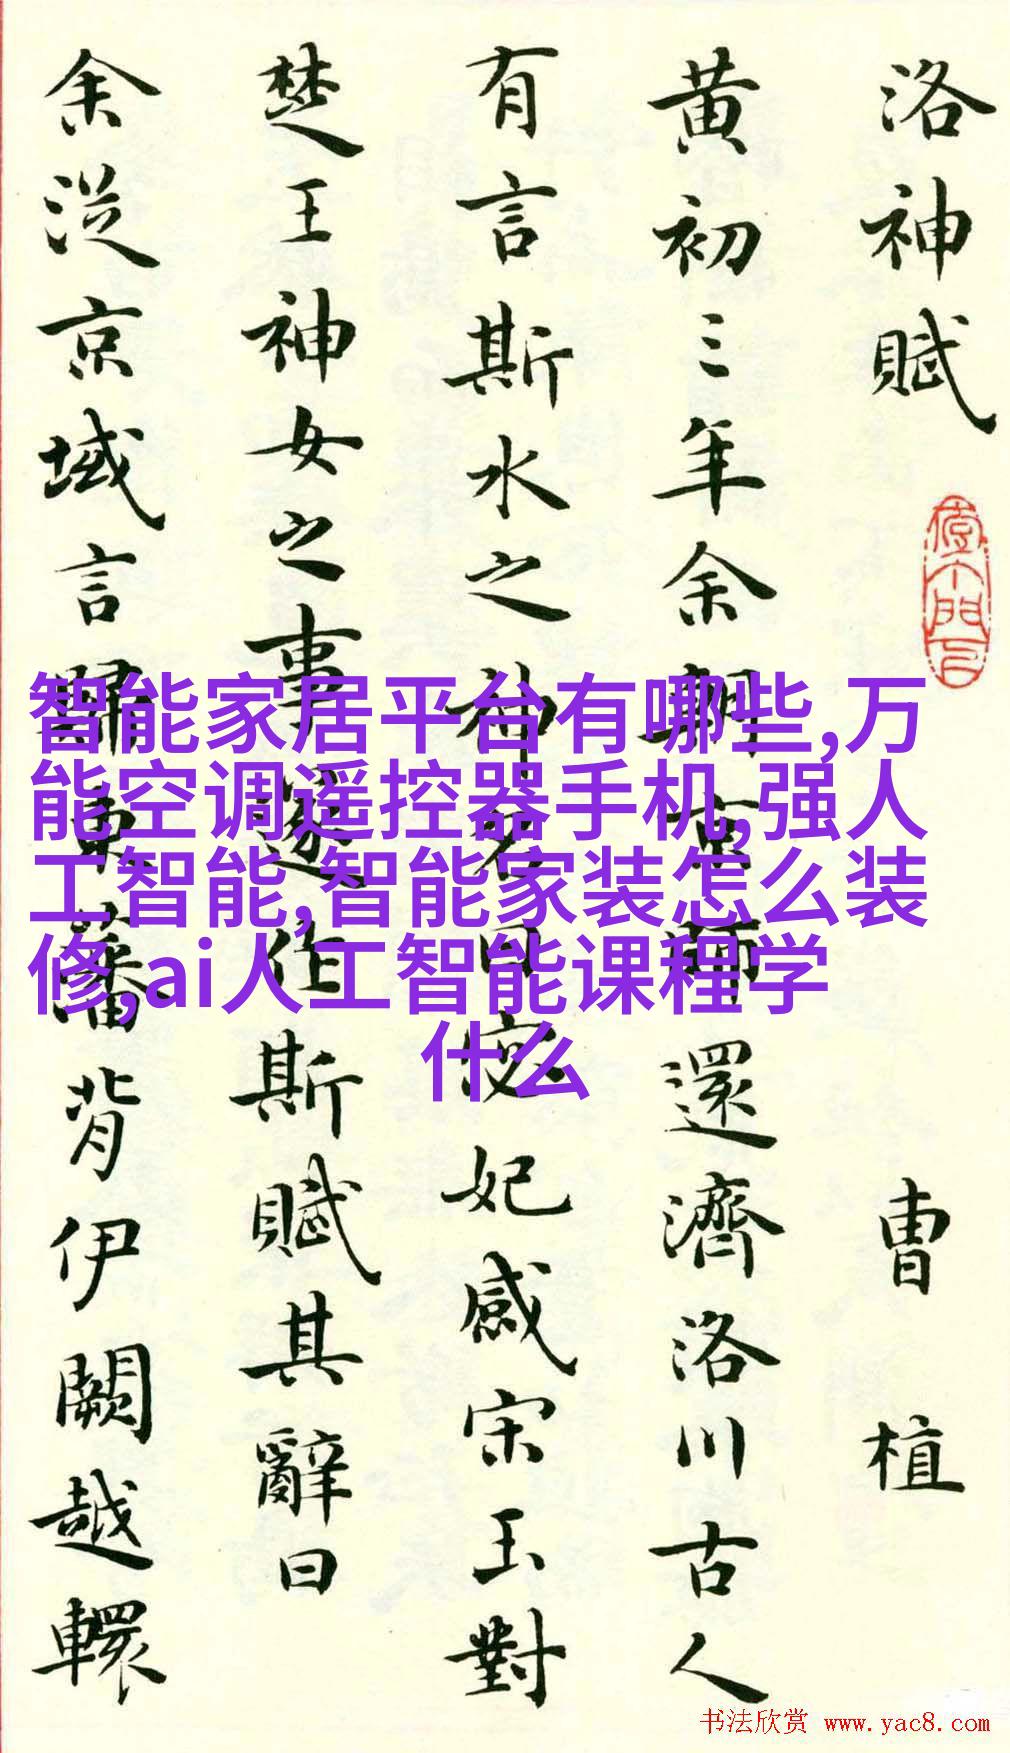 洛神賦
曹植
黄初三年余朝京師還濟洛川古人
有言斯水之神名曰宓妃感宋玉對
楚王神女之事遂作斯賦其辭曰
余從京域言歸東藩背伊闕越轘
智能家居平台有哪些,万
能空调遥控器手机,强人
工智能,智能家装怎么装
修,ai人工智能课程学
什么
书法欣赏 www.yac8.com